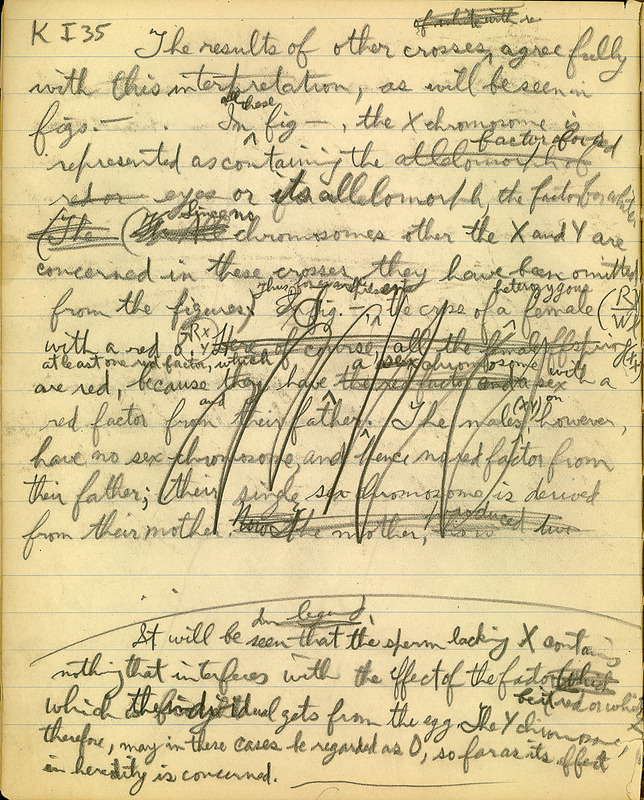 of white with re
K I 35
The results of other crosses, agree fully
with this interpretation, as will be seen in
figs. — . In all these fig —, the X chromosome is
represented as containing the factor for red allelomorph of
red or eyes or its allelomorph, the factor for white
(The Since no chromosomes other the X and Y are
concerned in these crosses, they have been omitted
from the figures) Thus for example fig. —, the case of a heterozygous female (R/W)
with a red ♂ of course, all the female offspring
at least one red factor, which
are red, because they have a sex chromosome with a
red factor from their father. The males (XY) however,
have no sex-chromosome, and hence no red factor from
their father; their single sex chromosome is derived
from their mother. Now the mother, produced two
In legend
It will be seen that the sperm lacking X contains
nothing that interferes with the effect of the factor which
be it red or white
which the individual gets from the egg. The Y chromosome,
therefore, may in these cases be regarded as O, so far as its effect
in heredity is concerned.